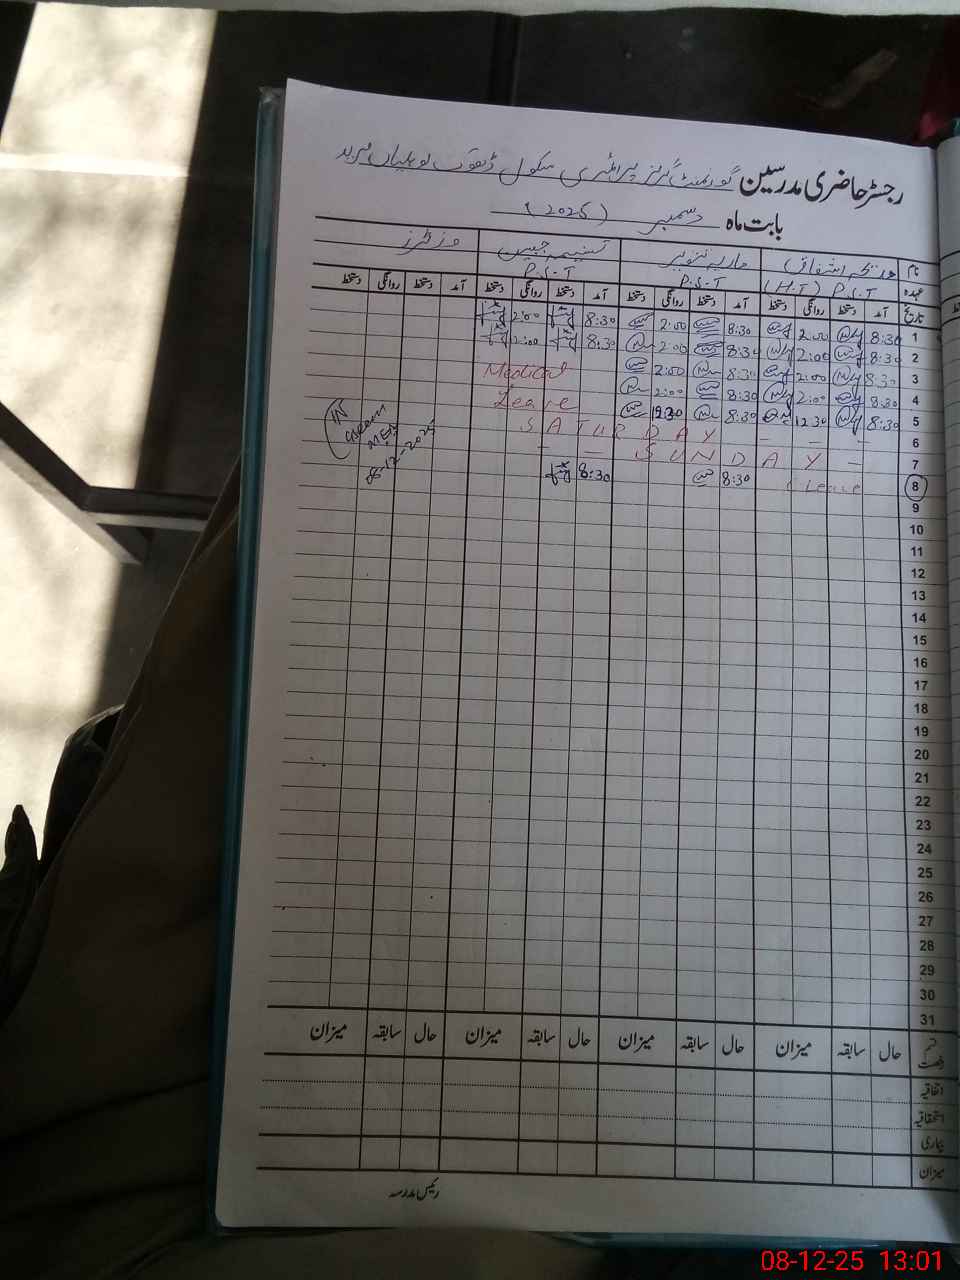 رجسٹر حاضری مدرسین گورنمنٹ گرلز پرائمری سکول ڈھوک
بابت ماہ دسمبر (2025)
نام اشفاق) ماریہ تنویر تسنیمہ جبیں وزٹرز
عہدہ P.S.T (H.T) P.S.T P.S.T
تاریخ آمد دستخط روانگی دستخط آمد دستخط روانگی دستخط آمد دستخط روانگی دستخط آمد دستخط روانگی دستخط
1 8:30 2:00 8:30 2:00 8:30 2:00
2 8:30 2:00 8:30 2:00 8:30 2:00
3 8:30 2:00 8:30 2:00 Medical
4 8:30 2:00 8:30 2:00 Leave
5 8:30 12:30 8:30 12:30
6 SATURDAY - -
7 - - SUNDAY -
8 Leave 8:30 8:30
IN
MEA
08-12-2025
9
10
11
12
13
14
15
16
17
18
19
20
21
22
23
24
25
26
27
28
29
30
31
قسم رخصت حال سابقہ میزان حال سابقہ میزان حال سابقہ میزان حال سابقہ میزان
اتفاقیہ
استحقاقیہ
بیماری
میزان
رئیس مدرسہ
08-12-25 13:01